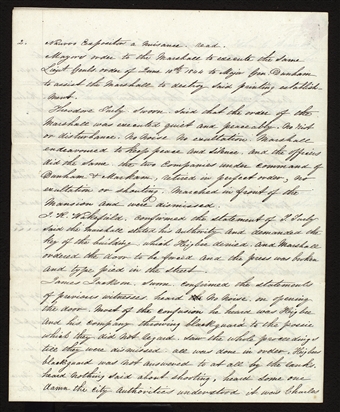 2.
Nauvoo Expositor a nuisance - read.
Mayors order to the Marshall to execute the same
Lieut Genls order of June 10th 1844 to Major Gen Dunham
to assist the Marshall to destroy said printing establish-
ment.
Theodore Turly Sworn. Said that the order of the
Marshall was executed quiet and peaceably. No Riot
or disturbance. No Noise. No exultation. Marshall
endeavored to keep peace and silence and the officers
did the same. the two Companies under command of
Dunham & Markham, retired in perfect order, no
exultation or shouting. Marched in front of the
Mansion and were dismissed.
J. R. Wakefield, confirmed the statement of T. Turly
Said the Marshall stated his authority and demanded the
Key of the building which Higbee denied, and Marshall
ordered the door to be forced and the press was broken
and type pied in the street.
James Jackson. Sworn confirmed the statements
of previous witnesses heard No Noise. on opening
the door. Most of the confusion he heard was Higbee
and his company throwing blackguard to the posse
which they did not regard. Saw the whole proceedings
till they were dismissed all was done in order. Higbees
blackguard was not answered to at all by the ranks.
heard Nothing said about shouting, heard some one
damn the city authorities understood it was Charles